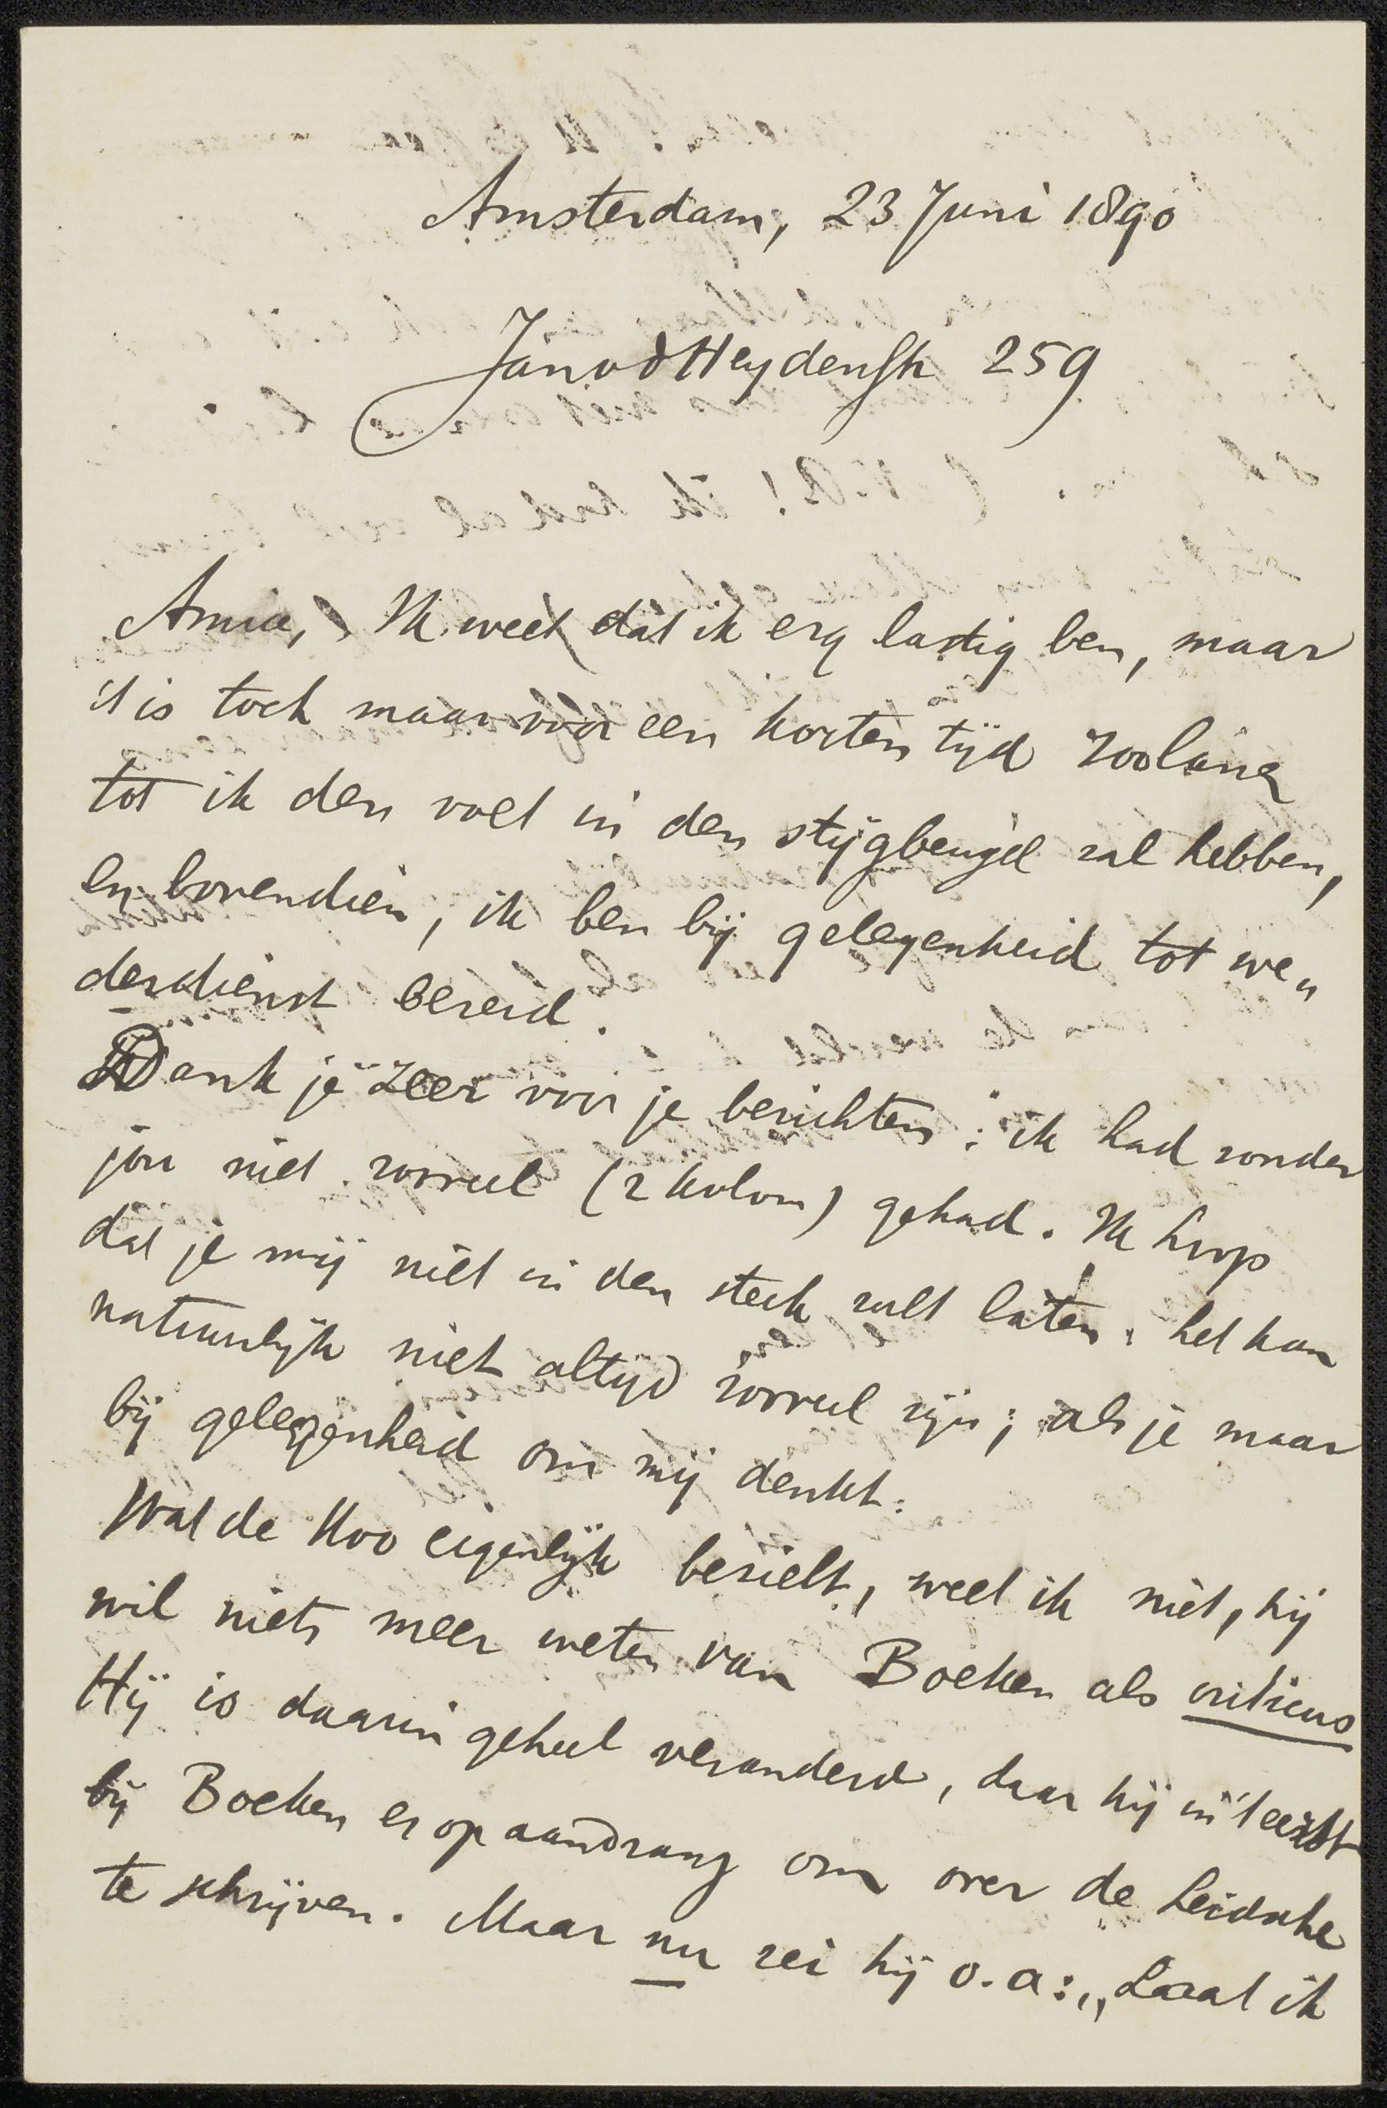 Amsterdam, 23 Juni 1890
Jan v d Heydenstr 259
Amice, Ik weet dat ik erg lastig ben, maar
't is toch maar voor een korten tijd zoolang
tot ik den voet in den stijgbeugel zal hebben,
en bovendien, ik ben bij gelegenheid tot we„
derdienst bereid.
Dank je zeer voor je berichten; ik had zonder
jou niet zooveel (2 kolom) gehad. Ik hoop
dat je mij niet in den steek zult laten; het kan
natuurlijk niet altijd zooveel zijn; als je maar
bij gelegenheid om mij denkt.
Wat de Koo eigenlijk bezielt, weet ik niet, hij
wil niets meer weten van Boeken als criticus
Hij is daarin geheel veranderd, daar hij in 't eerst
bij Boeken er op aandrang om over de Leidsche
te schrijven. Maar nu zei hij o.a: „Laat ik